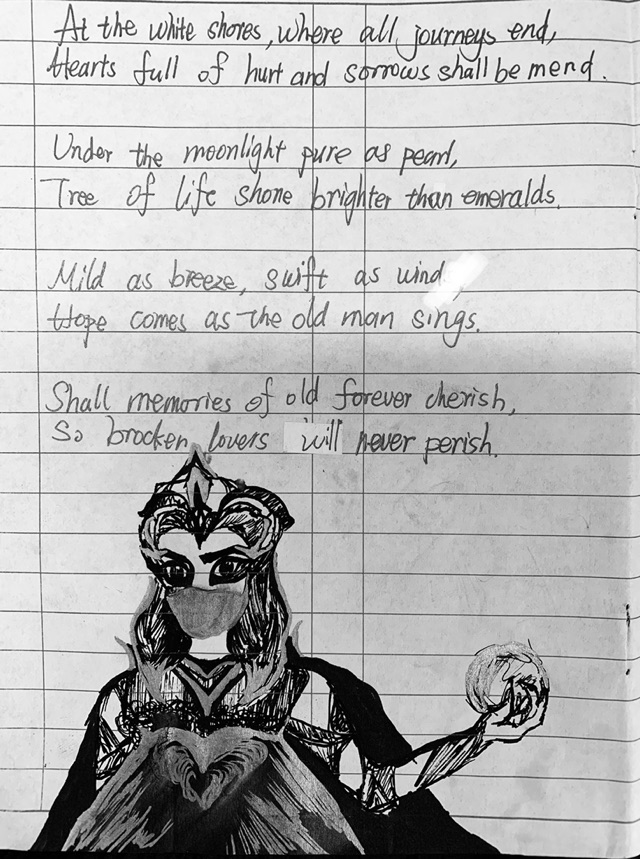 At the white shores, where all journeys end,
Hearts full of hurt and sorrows shall be mend.
Under the moonlight pure as pearl,
Tree of life shone brighter than emeralds.
Mild as breeze, swift as wind,
Hope comes as the old man sings.
Shall memories of old forever cherish,
So brocken lovers will never perish.